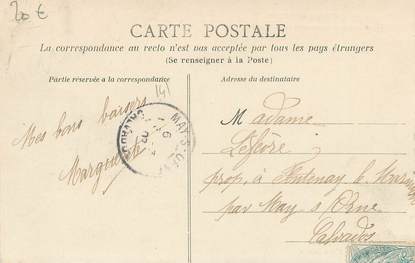 20 €
CARTE POSTALE
La correspondance au recto n'est pas acceptée par tous les pays étrangers
(Se renseigner à la Poste)
Partie réservée a la correspondance
Adresse du destinataire
141
Mes bons baisers
Marguerite
Madame
Lefèvre
prop, à Fontenay le Marmion
par May s/ Orne
Calvados